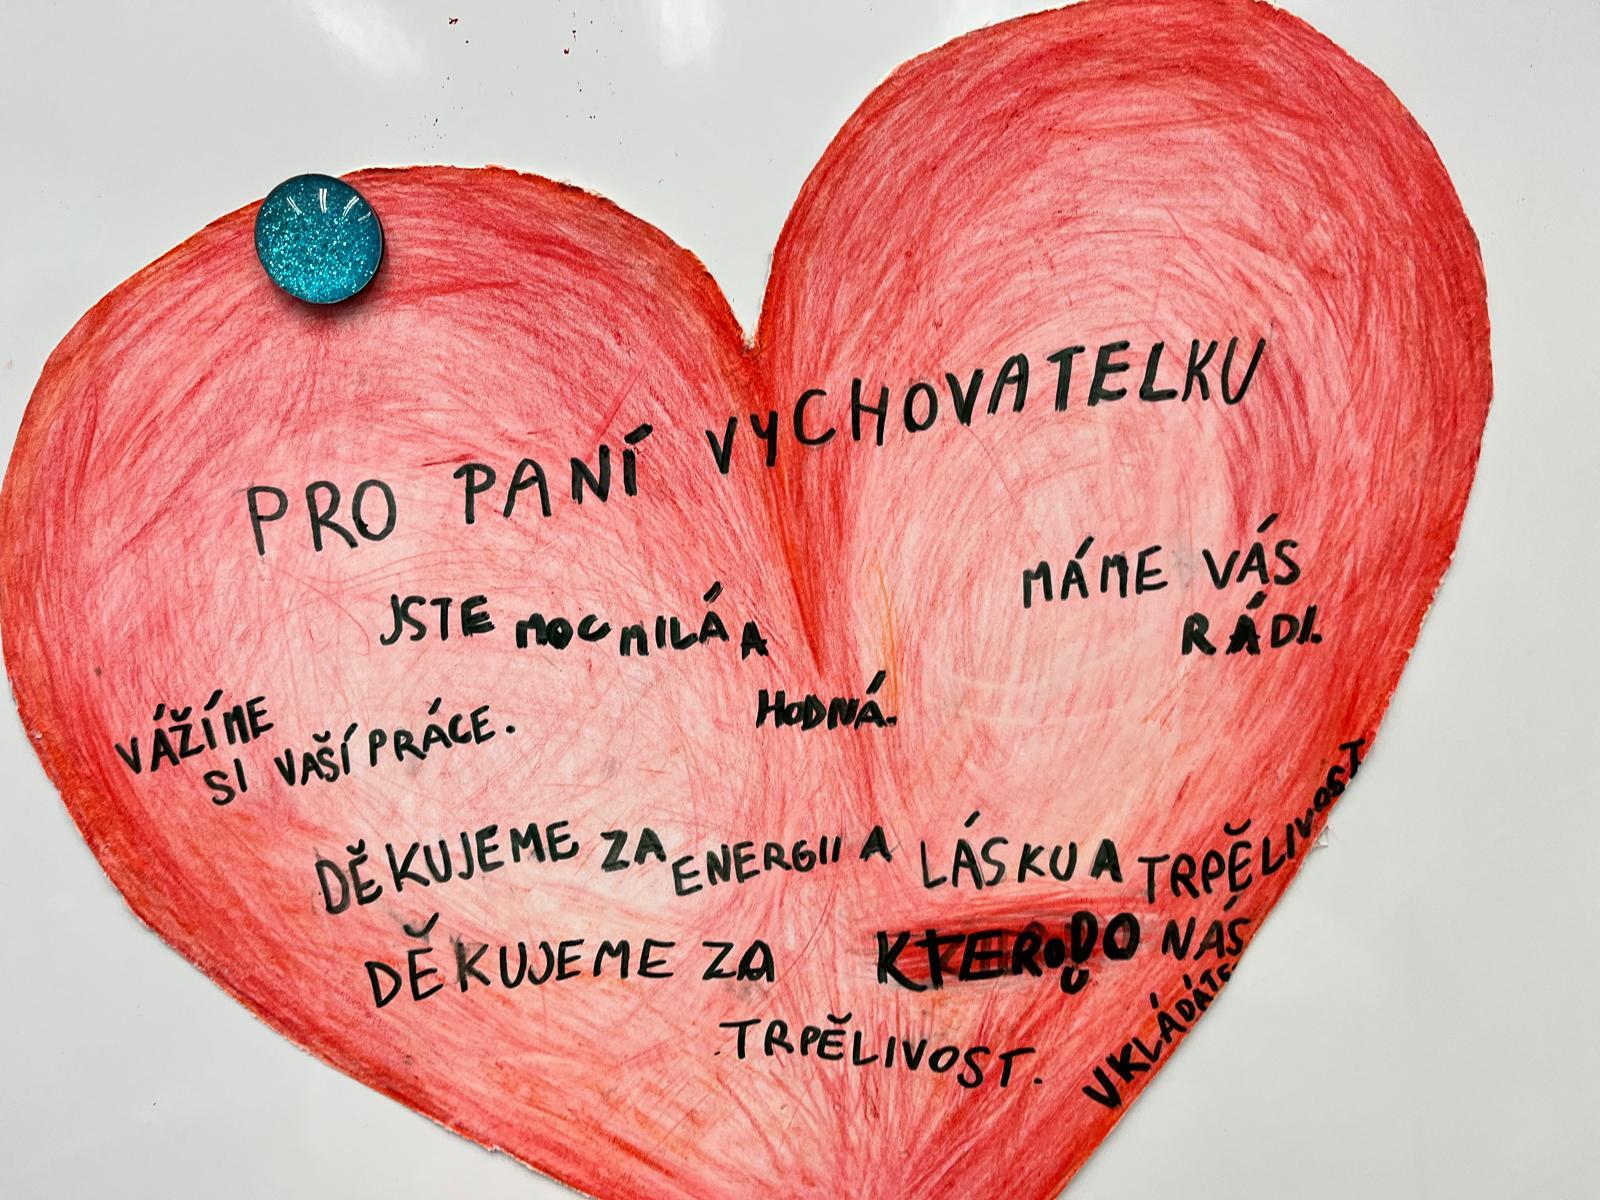 PRO PANÍ VYCHOVATELKU
MÁME VÁS
RÁDI.
JSTE MOC MILÁ A
HODNÁ.
VÁŽÍME
SI VAŠÍ PRÁCE.
DĚKUJEME ZA ENERGII A LÁSKU A TRPĚLIVOST
KTEROU DO NÁS
VKLÁDÁTE
DĚKUJEME ZA
TRPĚLIVOST.